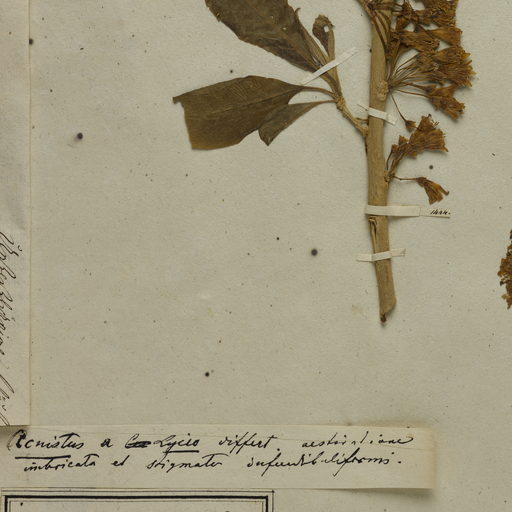 1444.
Acnistus a Lycio differt aestivatione
imbricata et stigmate infundibuliformi.